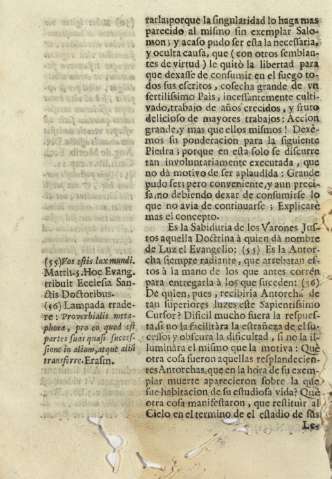 tarla; porque la singularidad lo haga mas
parecido al mismo sin exemplar Salo-
mon; y acaso pudo ser esta la necessaria,
y oculta causa, que (con otros semblan-
tes de virtud) le quitò la libertad para
que dexasse de consumir en el fuego to-
dos sus escritos, cosecha grande de vn
fertilissimo Pais, incessantemente culti-
vado, trabajo de años crecidos, y fruto
delicioso de mayores trabajos: Accion
grande, y mas que ellos mismos! Dexè-
mos su ponderacion para la siguiente
Piedra; porque en esta solo se discurre
tan involuntariamente executada, que
no dà motivo de ser aplaudida: Grande
pudo ser; pero conveniente, y aun preci-
sa, no debiendo dexar de consumirse lo
que no avia de continuarse; Explicarè
mas el concepto.
Es la Sabiduria de los Varones Jus-
tos aquella Doctrina à quien dà nombre
de Luz el Evangelio: (55) Es la Antor-
cha siempre radiante, que arrebatan es-
tos à la mano de los que antes corren
para entregarla à los que suceden: (56)
De quien, pues, recibiria Antorcha de
tan superiores luzes este Sapientissimo
Cursor? Dificil mucho fuera la respues-
ta, si no la facilitàra la estrañeza de el su-
cesso; y obscura la dificultad, si no la i-
lluminàra el mismo que la motiva: Què
otra cosa fueron aquellas resplandecien-
tes Antorchas, que en la hora de su exem-
plar muerte aparecieron sobre la que
fue habitacion de su estudiosa vida? Què
otra cosa manifestaron, que restituir al
Cielo en el termino de el estadio de sus
(55) Vos estis lux mundi.
Matth. 5. Hoc Evang.
tribuit Ecclesia San-
ctis Doctoribus.
(56) Lampada trade-
re: Proverbialis meta-
phora, pro eo quod est
partes suas quasi succes-
sione in alium, atque aliũ
transferre. Erasm.